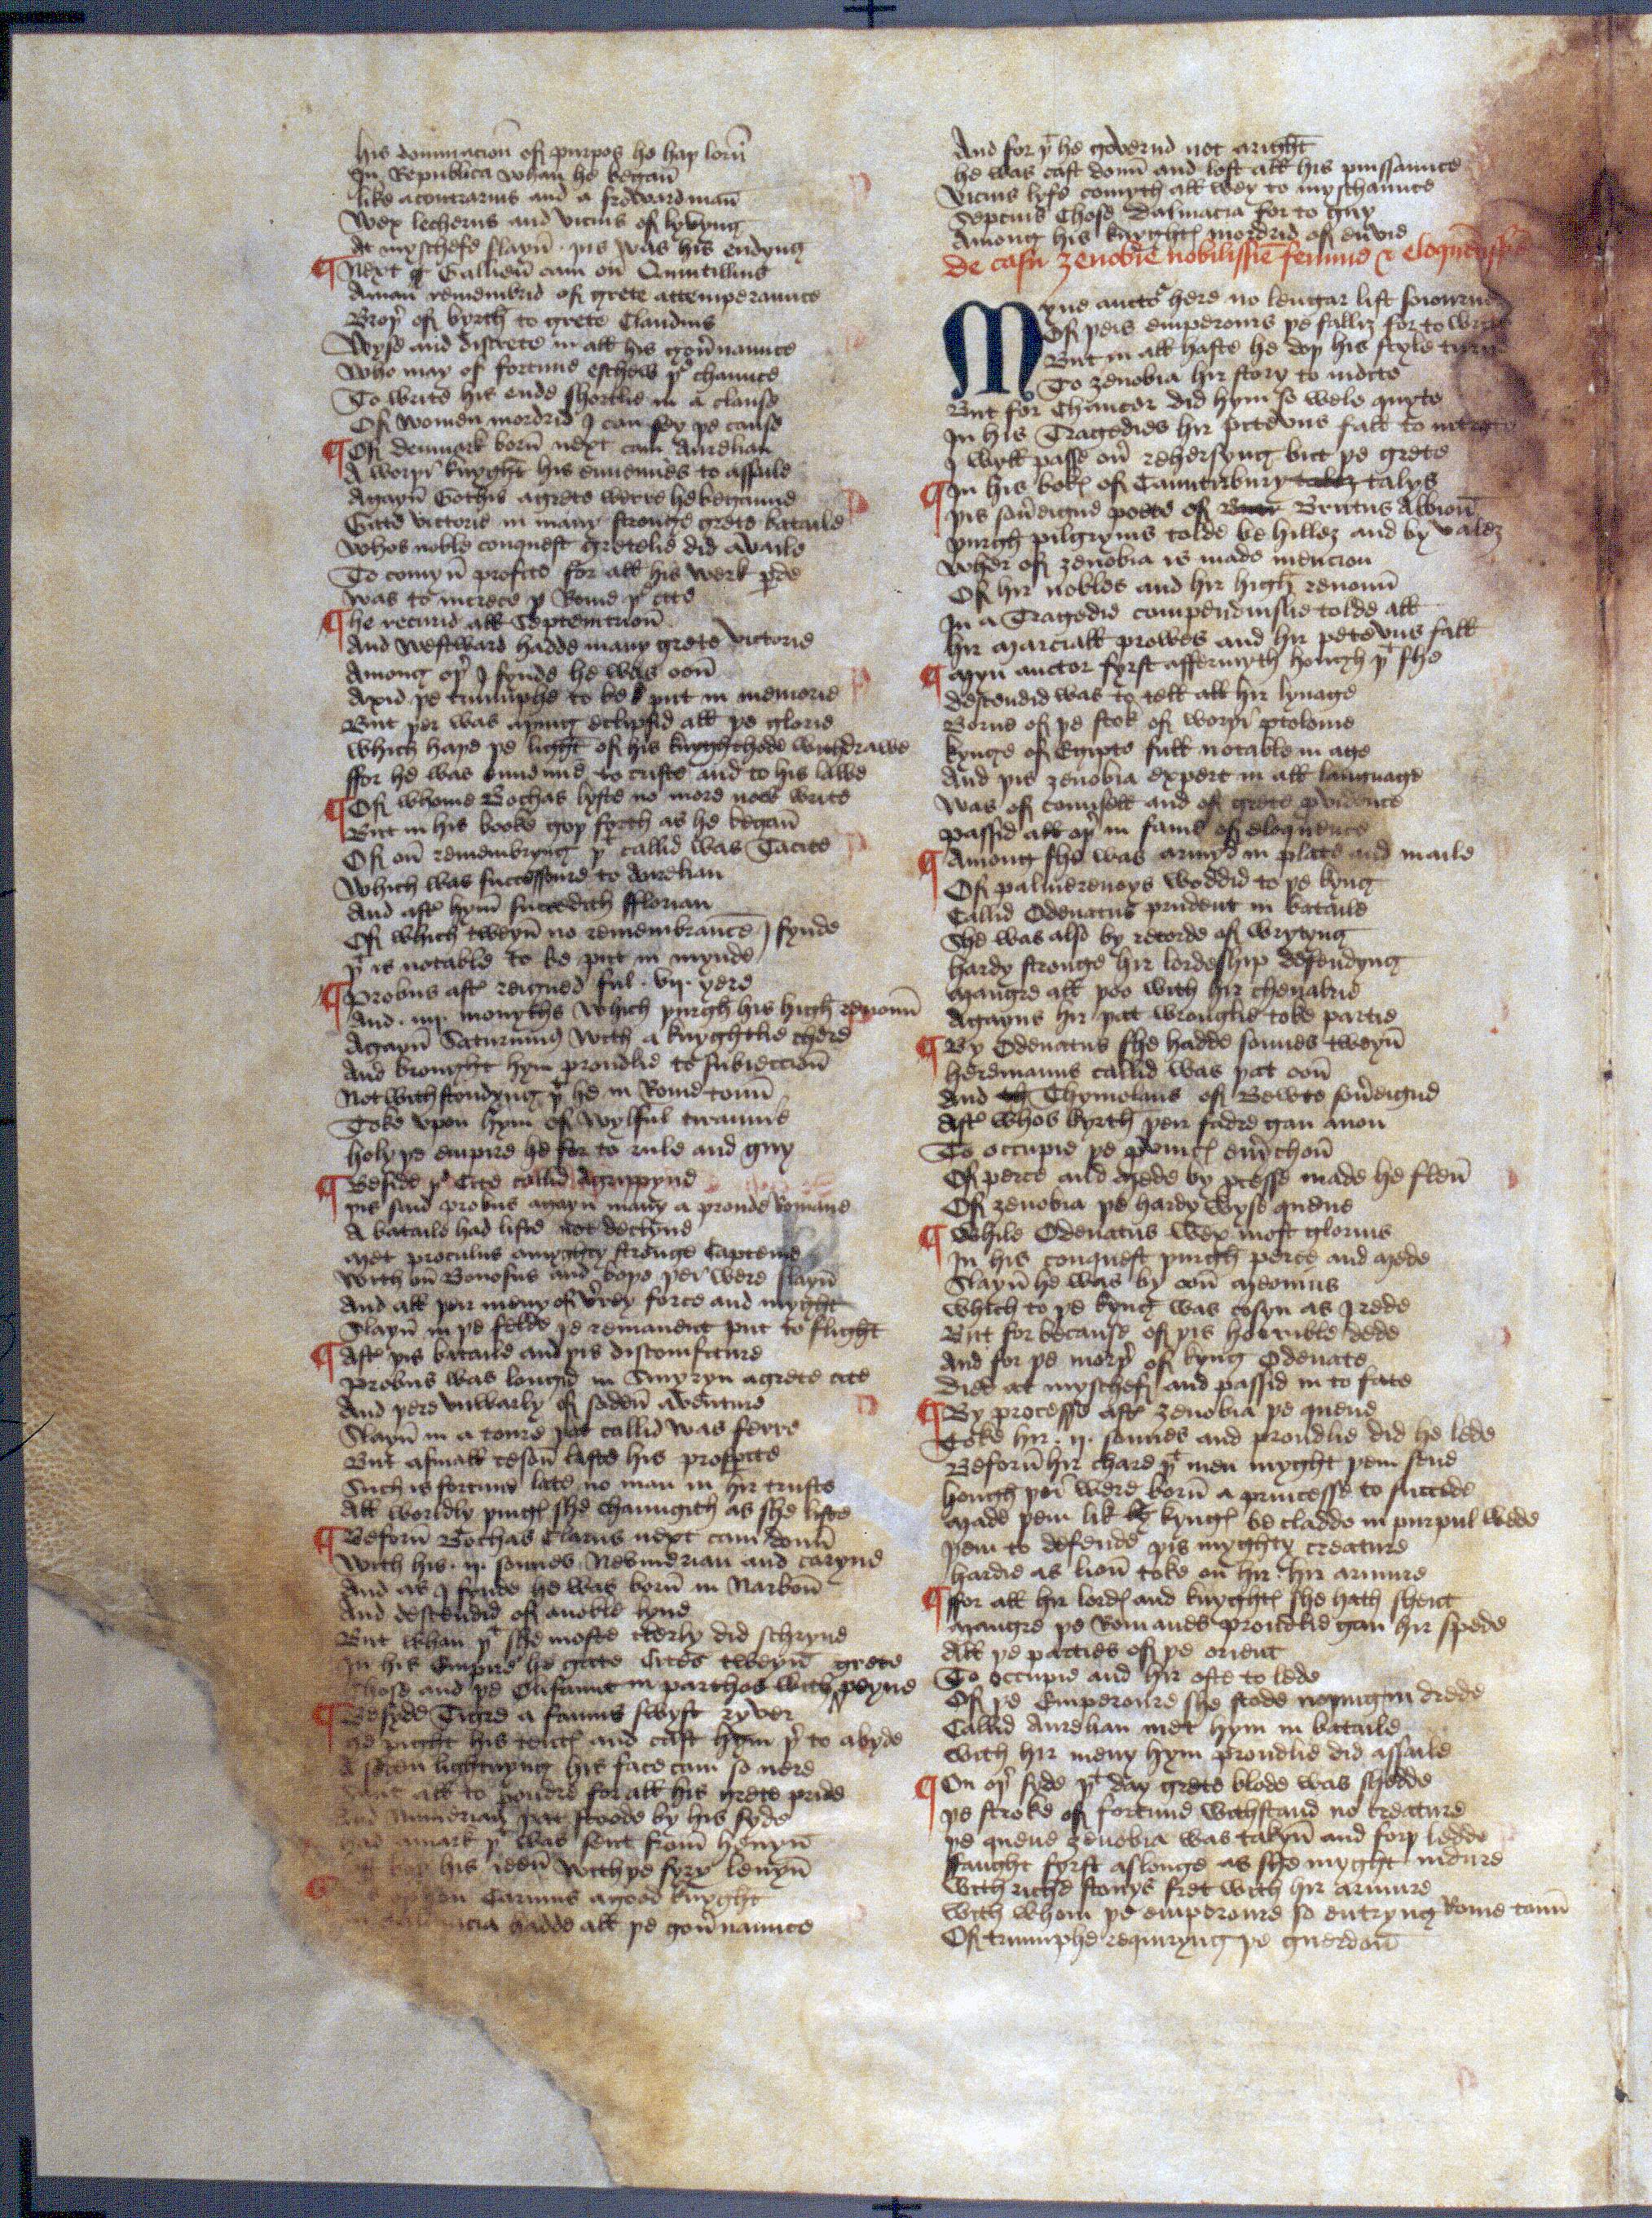 his dominacioū of purpos he haþ lorū
In Republica whan he begaū
like acontrarius and a froward maū
Wex lecherus and vicius of lyvyng
At myschefe slayū þis was his endyng
Next Gallieū cam oū Quintillius
Aman remembrid of grete attemperaunce
Broþ of byrth to grete Claudius
Wyse and discrete in all his goūnaunce
Who may of fortune eschew þe chaunce
To write his ende shortlie in a clause
Of women mordrid I can sey þe cause
Of denmark borū next cam Aurelian
A worþi knyght his enemies to assaile
Agayū Gothis agrete werre he beganne
Gate victorie in many stronge grete bataile
Whos noble conquest gretelie did availe
To comyū profite for all his werk
was to increce þe Rome þt cite
he recurid all Septemtrioū
And westward hadde many grete victorie
Among oþ I fynde he was ooū
Axid þe triumphe to be put in memorie
But þer was aþing eclipsid all þe glorie
Which haþe þe light of his knyghthode withdrawe
ffor he was enmie to criste and to his lawe
Of whome Bochas lyste no more now write
But in his booke goþ forth as he begaū
Of oū remembryng þt callid was Tacite
Which was successoure to Aurelian
And aft hym succedith fflorian
Of which tweyū no remembrance I fynde
þt is notable to be put in mynde
Probus aft reigned ful . vij. yere
And . iij. monyths Which þurgh his high renouū
Agayū Saturninus With a knyghtlie chere
And brought hym proudlie to subieccioū
Notwithstondyng þt he in Rome touū
Toke vpon hym of wylful tirannie
holy þe empire he for to rule and guy
Beside þe Cite callid Agrippyne
þis said probus agayn many a proude Romane
A bataile had liste not declyne
Met proculus amyghty stronge Capteine
With oū Bonosus and boþe þer were slayū
And all þeir meny of v̄rey force and myght
Slayū in þe felde þe remanent put to flight
Aft þis bataile and þis discomfiture
Probus was longid in Smyryn agrete cite
And þere vnwarly of sodeū aventure
Slayū in a toure þat callid was ferre
But asmall cesoū laste his prosperite
Such is fortune late no man in hir truste
All worldly þinges she chaungith as she liste
Beforū Bochas Clarus next cam douū
With his . ij. sonnes Nevmerian and caryne
And as I fynde he was borū in Narboū
And descendid of anoble lyne
But whan þt she moste cterly did schryne
In his Empire he gate Cites tweyū grete
Those and þe Elifaunt in parthos with peyne
Besyde Tigre a famus swyft ryver
he pight his tentes and cast hym þ to abyde
A soden lightnyng his face cam so nere
all to poudrd for all his grete pride
And Numerian þat stoode by his syde
had amark þt was sent from hevyū
his ieeū with þe fyry levyū
Carinus agood knyght
hadde all þe goūnaunce
And for þt he governd not aright
he was cast douū and lost all his puissaunce
Vicius lyfe comyth all wey to myschaunce
Septeius Chose Dalmatia for to guy
Among his knyghtes mordrid of envie
de casu zenobie nobilissie femine & eloquē
Myne auctor here no lengar list soiourne
Of þeis emperours þe falliz for to write
But in all haste he doþ his style turne
To zenobia hir story to indite
But for Chaucer did hym so wele quyte
In his Tragedies hir piteous fall to
I wyll passe oū rehersyng but þe grete
In his boke of Caunterbury talys
þis soūeigne poete of Brutus Albioū
þurgh pilgryms tolde be hillez and by valez
Wher of zenobia is made mencion
Of hir nobles and hir high renouū
In a Tragedie compendiuslie tolde all
hir marciall prowes and hir petevus fall
Myn auctor fyrst affermyth hough þt she
descendid was to tell all hir lynage
Borne of þe stok of worþi ptolome
kynge of Egipte full notable in age
And þis zenobia expert in all language
Was of counsell and of grete pvidence
passid all oþ in fame of eloquence
Among she was armyd in plate and maile
Of palmerenoys weddid to þe kyng
Callid Odenatus prudent in bataile
She was also by recorde of wrytyng
hardy stronge hir lordeship defendyng
Maugre all þoo with hir chevalrie
Agayns hir þat wronglie toke partie
By Odenatus she hadde sonnes tweyū
heremanus callid was þat ooū
And Thymolaus of Bewte soūeigne
Aft whos byrth þeir fadre gan anon
To occupie þe pvinc euȳchoū
Of perce and mede by pcesse made he fleū
Of zenobia þe hardy wyse quene
While Odenatus wex most glorius
In his conquest þurgh perce and mede
Slayū he was by ooū Meonius
which to þe kyng was cosyn as I rede
But for because of þis horrible dede
And for þe morþ of kyng Odenate
Died at myschefe and passid in to fate
By processe aft zenobia þe quene
Toke hir . ij. sonnes and proudlie did he lede
Beforū hir chare þt men myght þem sene
hough þei were borū a princesse to succede
Made þem lik kynges be cladde in purpul wede
þem to defende þis myghty creature
hardie as lioū toke oū hir hir armure
ffor all hir lordes and knyghtes she hath shent
Maugre þe Romanes proudlie gan hir spede
All þe parties of þe orient
To occupie and hir oste to lede
Of þe Emperoure she stode noþing in drede
Callid Aurelian met hym in bataile
With hir meny hym proudlie did assaile
On oþ syde þt day grete blode was shedde
þe stroke of fortune withstand no creature
þe quene zenobia was takyū and forþ ledde
Faught fyrst aslonge as she myght indure
With riche stonys fret with hir armure
With whom þe emperoure so entryng Rome touū
Of triumphe requiryng þe guerdoū